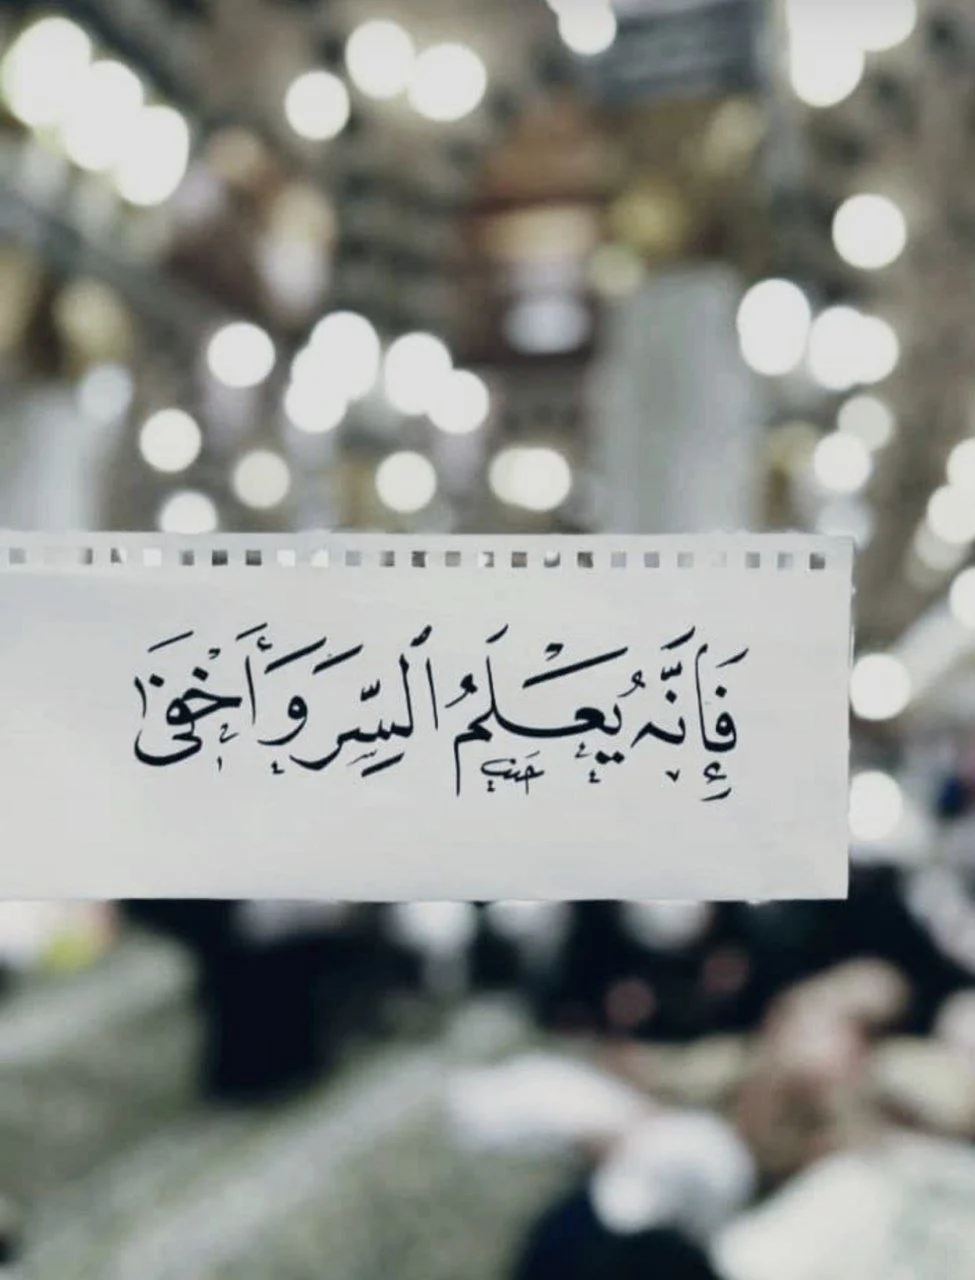 فَإِنَّهُ يَعْلَمُ السِّرَّ وَأَخْفَى